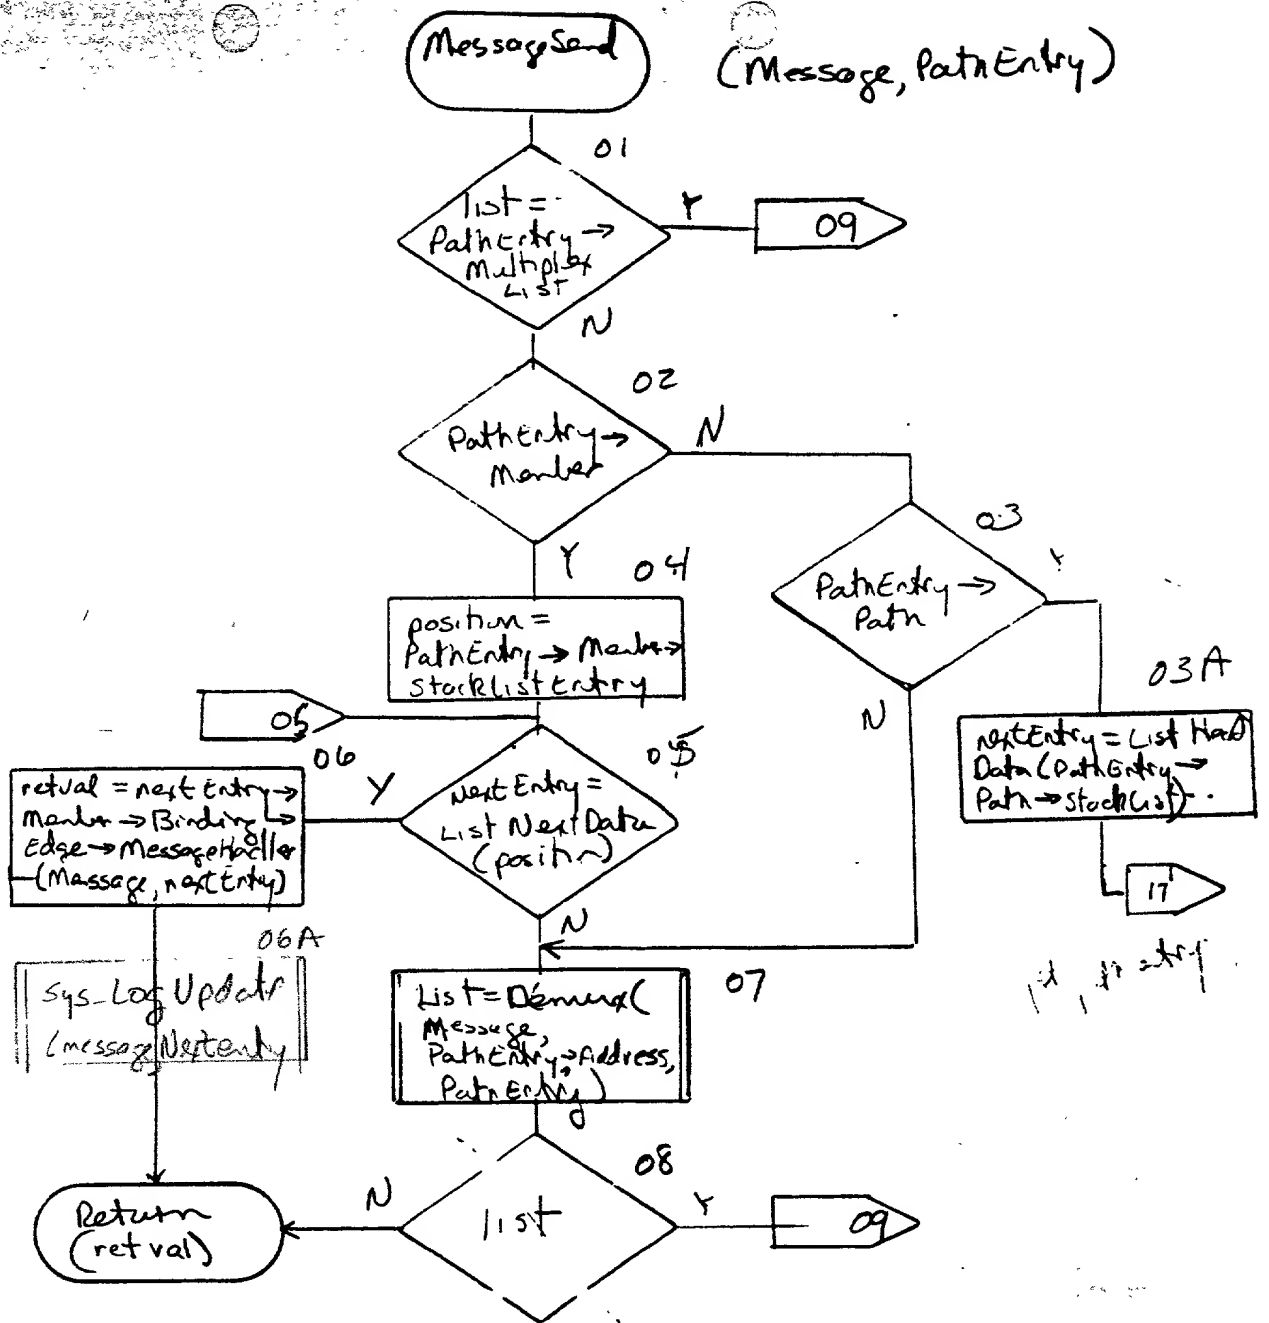 MessageSend
(Message, PathEntry)
01
list =
PathEntry →
Multiplex
List
Y
09
N
02
PathEntry →
Member
N
Y
03
PathEntry →
Path
Y
N
04
position =
PathEntry → Member →
StackListEntry
03A
nextEntry = List Head
Data (PathEntry →
Path → StackList)
17
05
05
NextEntry =
List NextData
(position)
Y
N
06
retval = nextEntry →
Member → Binding →
Edge → MessageHandler
(Message, nextEntry)
06A
sys_Log Update
(message Nextentry
07
List = Demux(
Message,
PathEntry → Address,
PathEntry)
08
list
N
Y
09
Return
(retval)
entry